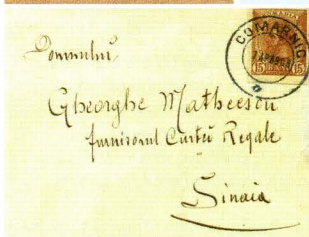 COMARNIC
15 15
Domnului
Gheorghe Matheescu
furnisorul Curtei Regale
Sinaia